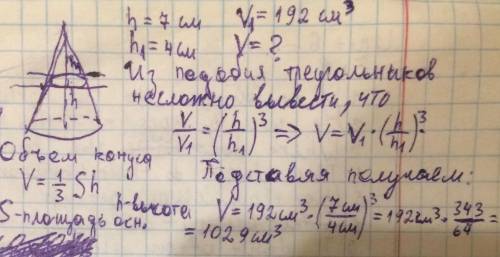 h = 7 см   V₁ = 192 см³
h₁ = 4 см   V = ?
Из подобия треугольников
несложно вывести, что
V/V₁ = (h/h₁)³ => V = V₁ · (h/h₁)³.
Объем конуса
V = 1/3 Sh
h-высота
S-площадь осн.
Подставляя получаем:
V = 192 см³ · (7 см/4 см)³ = 192 см³ · 343/64 =
= 1029 см³